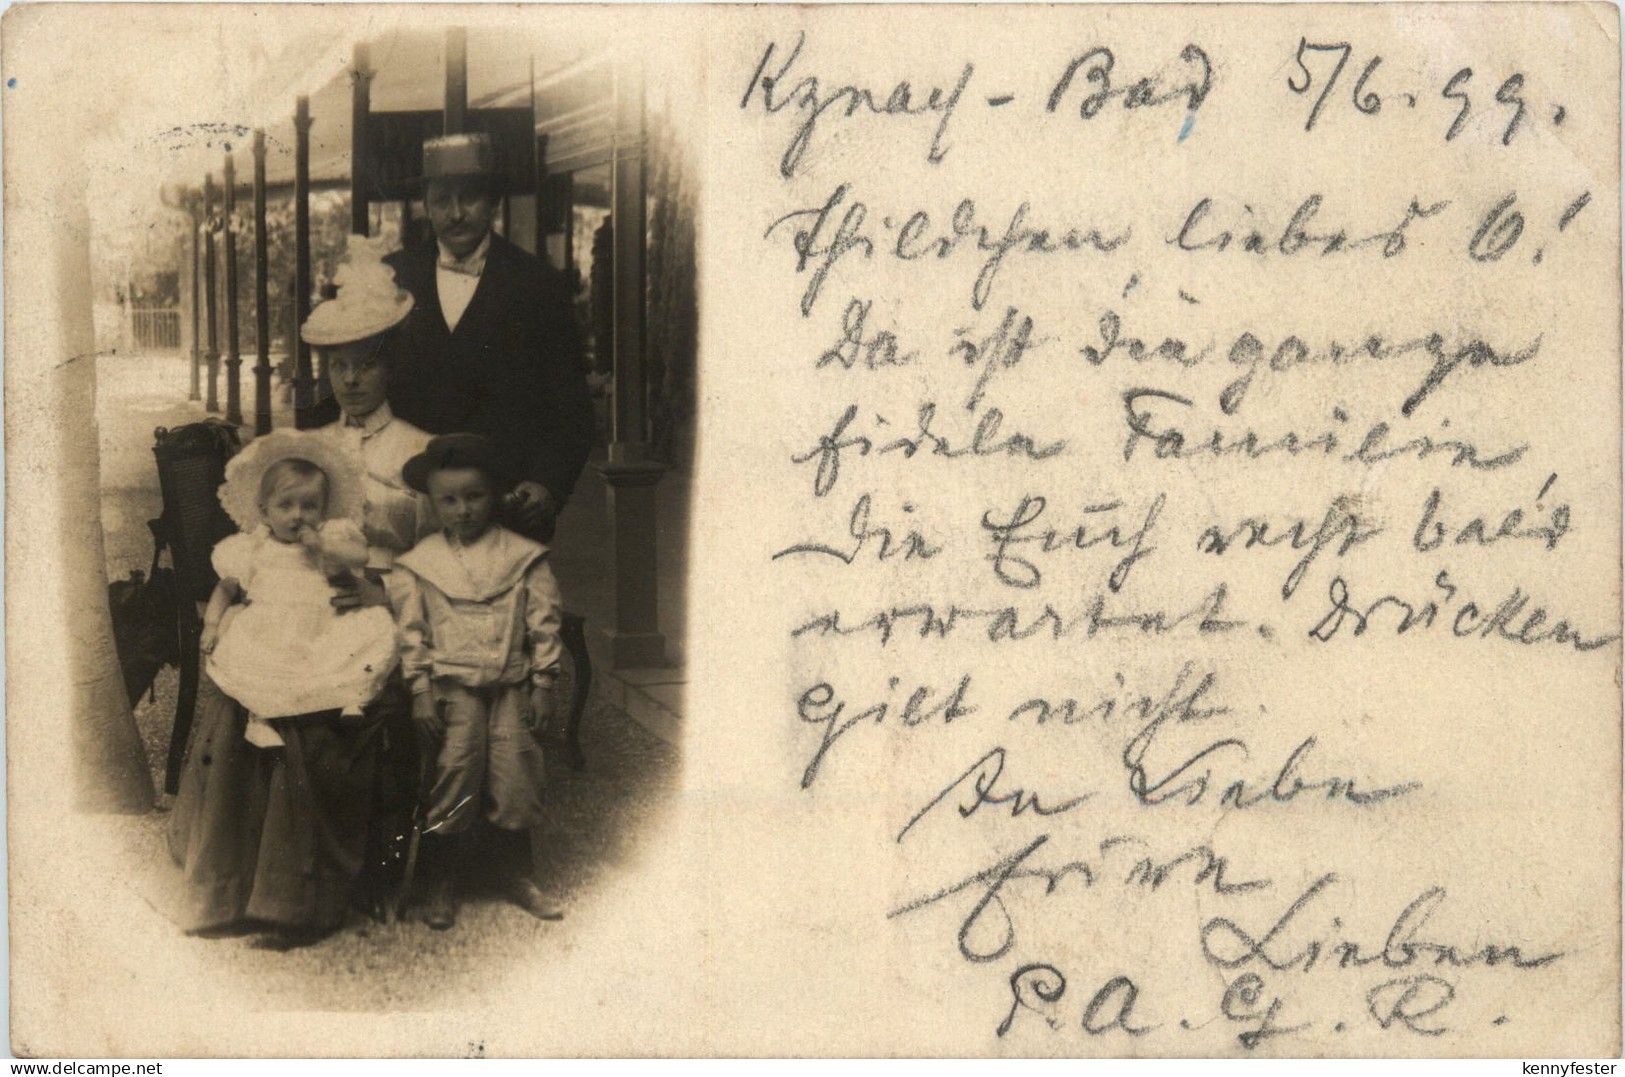 Kznach-Bad 5/6.99.
Thildchen, liebes O!
Da ist die ganze
fidele Familie,
die Euch recht bald
erwartet. Drücken
gilt nicht.
In Liebe
Eure
Lieben
P. A. G. R.
www.delcampe.net
kennyfester